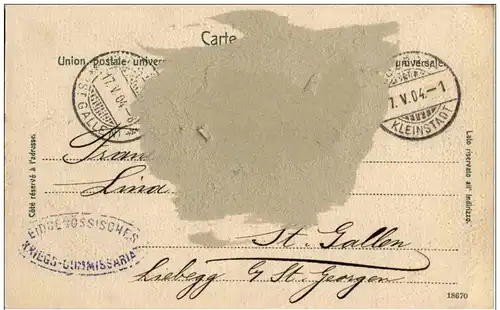 Carte
Union postale univers universale
ST. GALLEN
17.V.04.-8
7.V.04.-1
KLEINSTADT
Côté réservé à l'adresse.
Lato riservato all' indirizzo.
Frau
Lina
EIDGENÖSSISCHES
KRIEGS-COMMISSARIA
St. Gallen
Liebegg b/ St. Georgen
18670